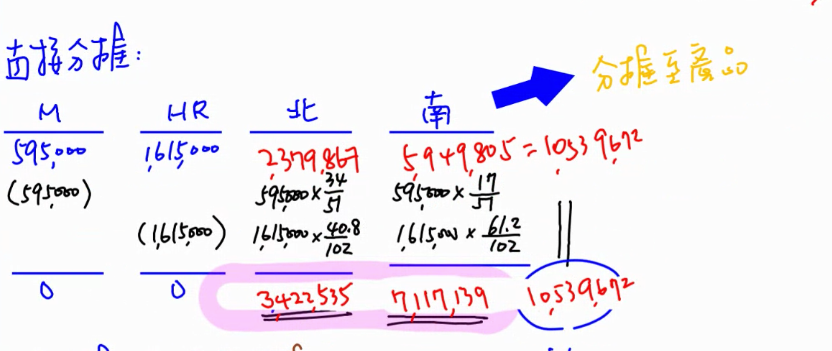 直接分攤:
分攤至產品
M HR 北 南
595,000 1,615,000 2,379,867 5,949,805 = 10,539,672
(595,000) 595,000 × 34/51 595,000 × 17/51
(1,615,000) 1,615,000 × 40.8/102 1,615,000 × 61.2/102
0 0 3,422,535 7,117,139 10,539,672